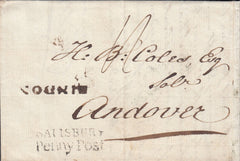 H: B: Coles, Esq
Solr
Andover
SALISBURY
Penny Post